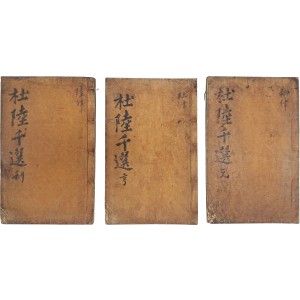 杜陸千選 利
杜陸千選 亨
杜陸千選 元